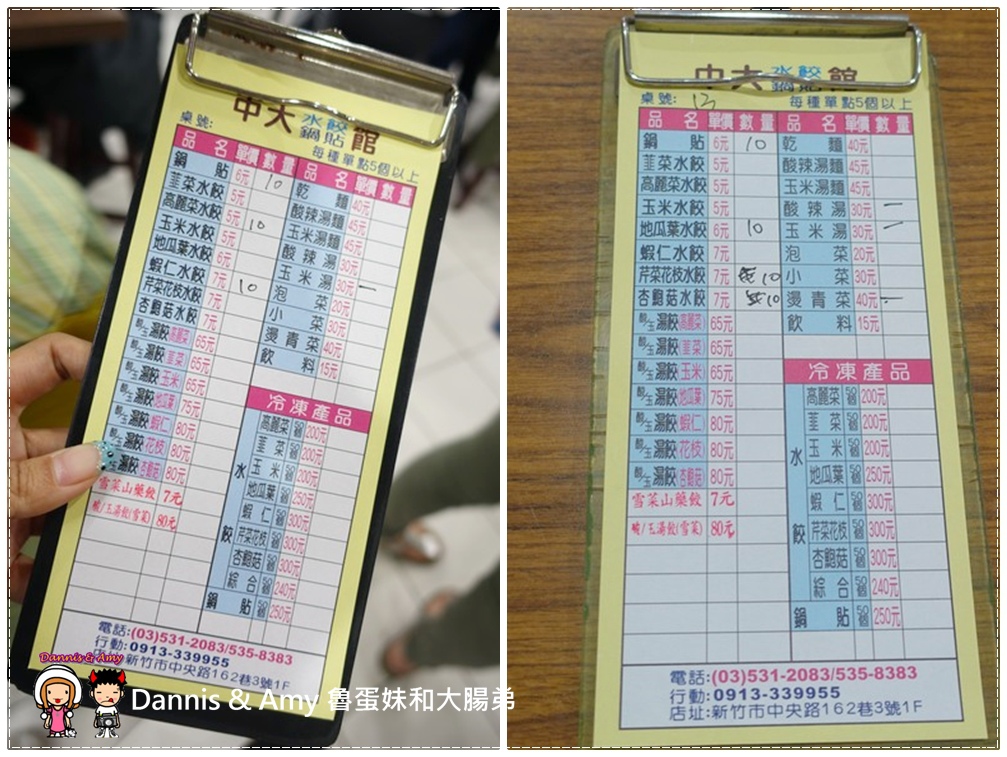 中大水餃鍋貼館
桌號:
每種單點5個以上
品名 單價 數量 品名 單價 數量
鍋貼 6元 10 乾麵 40元
韮菜水餃 5元 酸辣湯麵 45元
高麗菜水餃 5元 玉米湯麵 45元
玉米水餃 5元 10 酸辣湯 30元
地瓜葉水餃 6元 玉米湯 30元 一
蝦仁水餃 7元 泡菜 20元
芹菜花枝水餃 7元 10 小菜 30元
杏鮑菇水餃 7元 燙青菜 40元
酸/玉湯餃(高麗菜) 65元 飲料 15元
酸/玉湯餃(韮菜) 65元
酸/玉湯餃(玉米) 65元 冷凍產品
酸/玉湯餃(地瓜葉) 75元 高麗菜 50個 200元
酸/玉湯餃(蝦仁) 80元 韮菜 50個 200元
酸/玉湯餃(花枝) 80元 玉米 50個 200元
酸/玉湯餃(杏鮑菇) 80元 地瓜葉 50個 250元
雪菜山藥餃 7元 蝦仁 50個 300元
酸/玉湯餃(雪菜) 80元 芹菜花枝 50個 300元
水餃 杏鮑菇 50個 300元
綜合 50個 240元
鍋貼 50個 250元
電話:(03)531-2083/535-8383
行動:0913-339955
新竹市中央路162巷3號1F
Dannis & Amy
Dannis & Amy 魯蛋妹和大腸弟
中大水餃鍋貼館
桌號: 13 每種單點5個以上
品名 單價 數量 品名 單價 數量
鍋貼 6元 10 乾麵 40元
韮菜水餃 5元 酸辣湯麵 45元
高麗菜水餃 5元 玉米湯麵 45元
玉米水餃 5元 酸辣湯 30元 一
地瓜葉水餃 6元 10 玉米湯 30元 一
蝦仁水餃 7元 泡菜 20元
芹菜花枝水餃 7元 10 小菜 30元
杏鮑菇水餃 7元 10 燙青菜 40元 一
酸/玉湯餃(高麗菜) 65元 飲料 15元
酸/玉湯餃(韮菜) 65元
酸/玉湯餃(玉米) 65元 冷凍產品
酸/玉湯餃(地瓜葉) 75元 高麗菜 50個 200元
酸/玉湯餃(蝦仁) 80元 韮菜 50個 200元
酸/玉湯餃(花枝) 80元 玉米 50個 200元
酸/玉湯餃(杏鮑菇) 80元 地瓜葉 50個 250元
雪菜山藥餃 7元 蝦仁 50個 300元
酸/玉湯餃(雪菜) 80元 芹菜花枝 50個 300元
水餃 杏鮑菇 50個 300元
綜合 50個 240元
鍋貼 50個 250元
電話:(03)531-2083/535-8383
行動:0913-339955
店址:新竹市中央路162巷3號1F